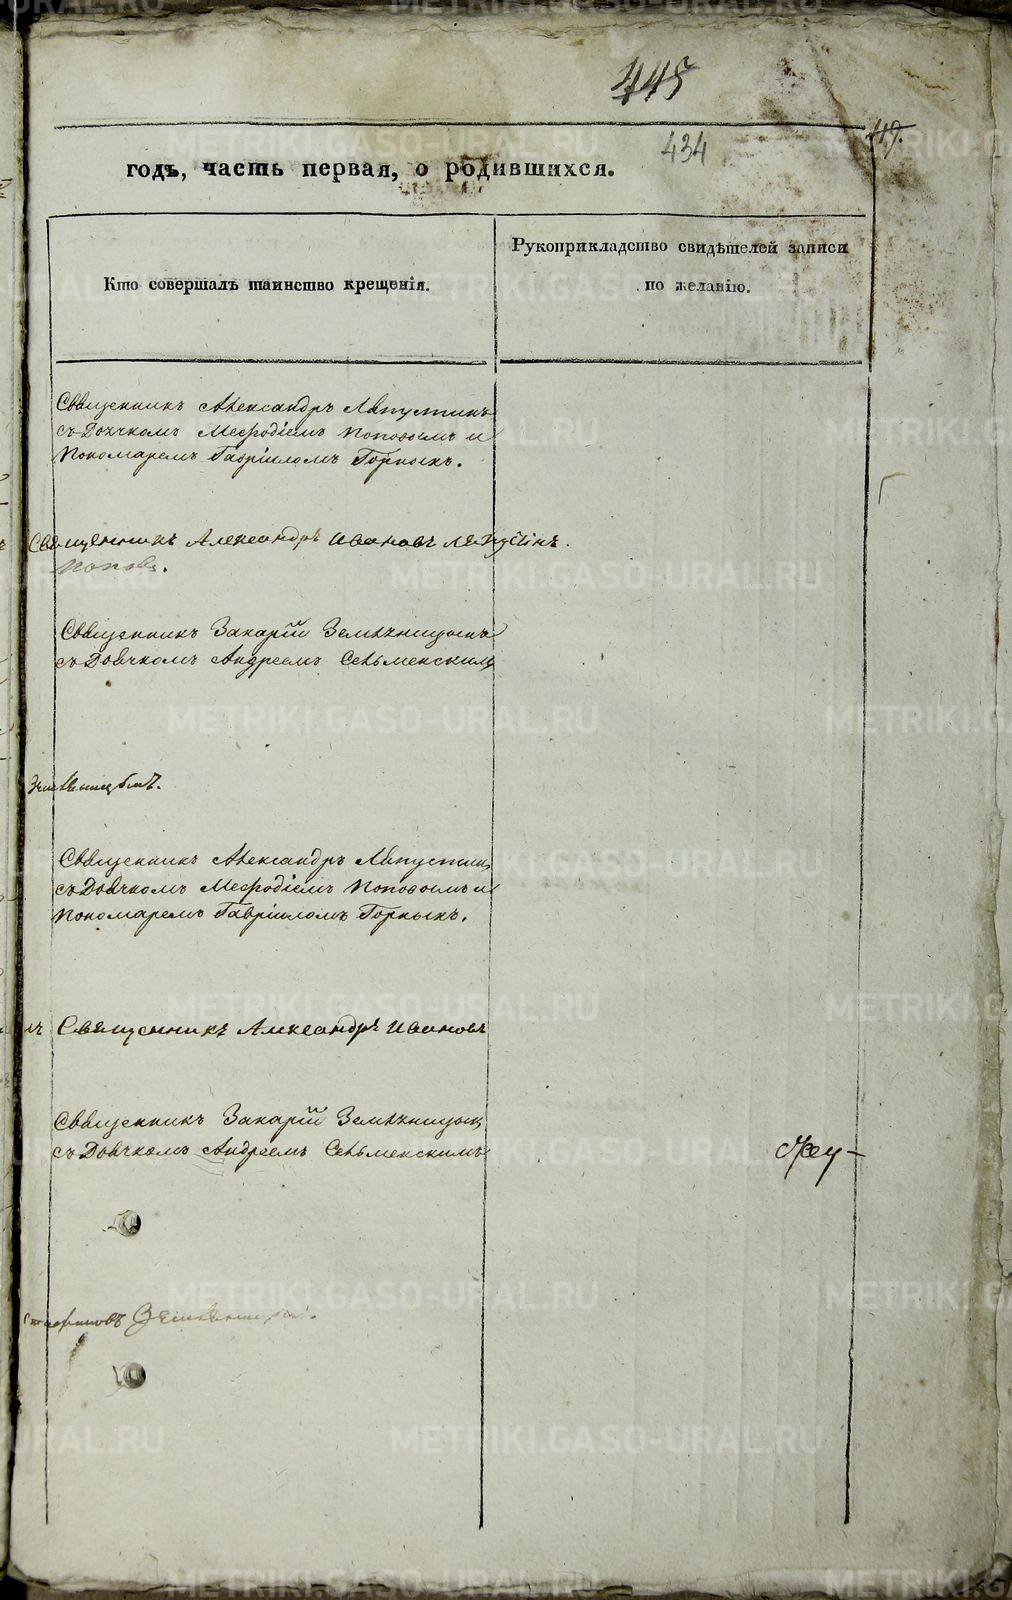 445
434
49.
годъ, часть первая, о родившихся.
Кто совершалъ таинство крещенія.
Рукоприкладство свидѣтелей записи
по желанію.
Священникъ Александръ Лапустинъ
съ Дьячкомъ Мефодіемъ Поповымъ и
Пономаремъ Гавріиломъ Горныхъ.
Священникъ Александръ Ивановъ Лапустинъ.
Поповъ.
Священникъ Захарій Земляницынъ
съ Дьячкомъ Андреемъ Сельменскимъ
Земляницынъ.
Священникъ Александръ Лапустинъ
съ Дьячкомъ Мефодіемъ Поповымъ и
Пономаремъ Гавріиломъ Горныхъ.
Священникъ Александръ Ивановъ
Священникъ Захарій Земляницын
съ Дьячкомъ Андреемъ Сельменскимъ
METRIKI.GASO-URAL.RU